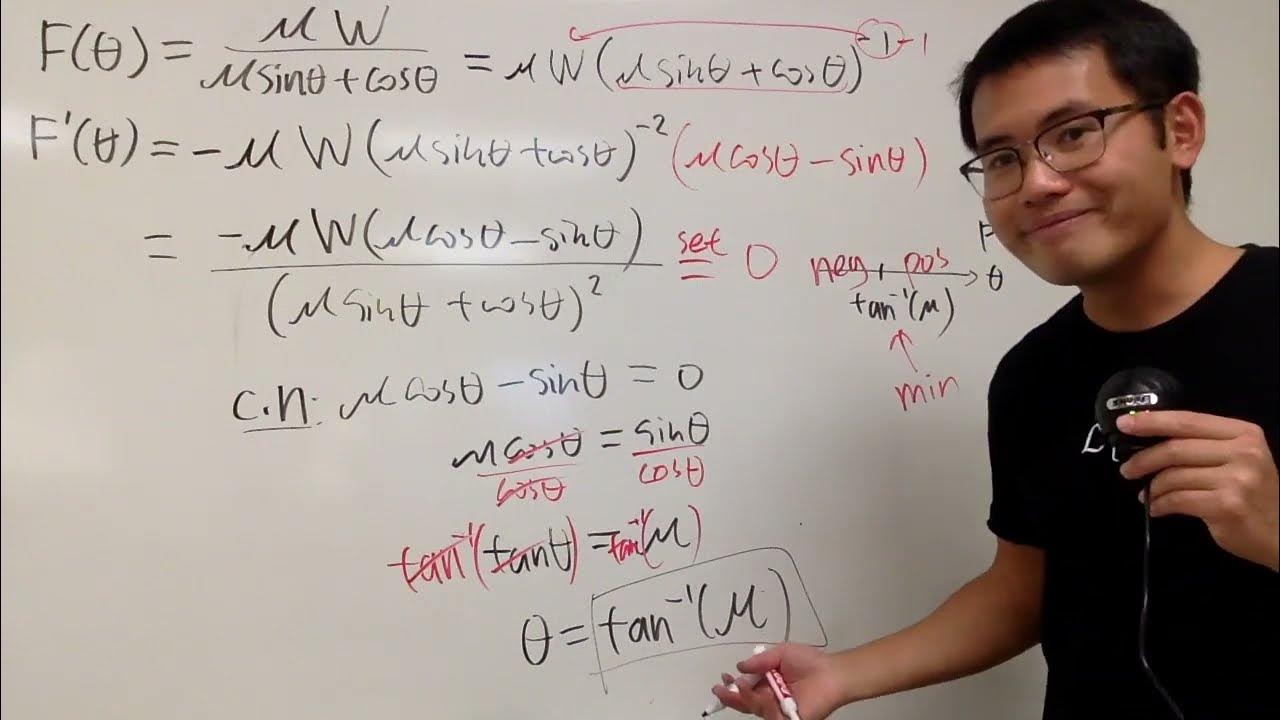 F(θ) = μW / (μsinθ + cosθ) = μW(μsinθ + cosθ)^-1 -1
F'(θ) = -μW(μsinθ + cosθ)^-2 (μcosθ - sinθ)
= -μW(μcosθ - sinθ) / (μsinθ + cosθ)^2 set = 0
F
neg pos θ
tan^-1(μ)
min
c.n: μcosθ - sinθ = 0
μcosθ / cosθ = sinθ / cosθ
tan^-1(tanθ) = tan^-1(μ)
θ = tan^-1(μ)
SHURE